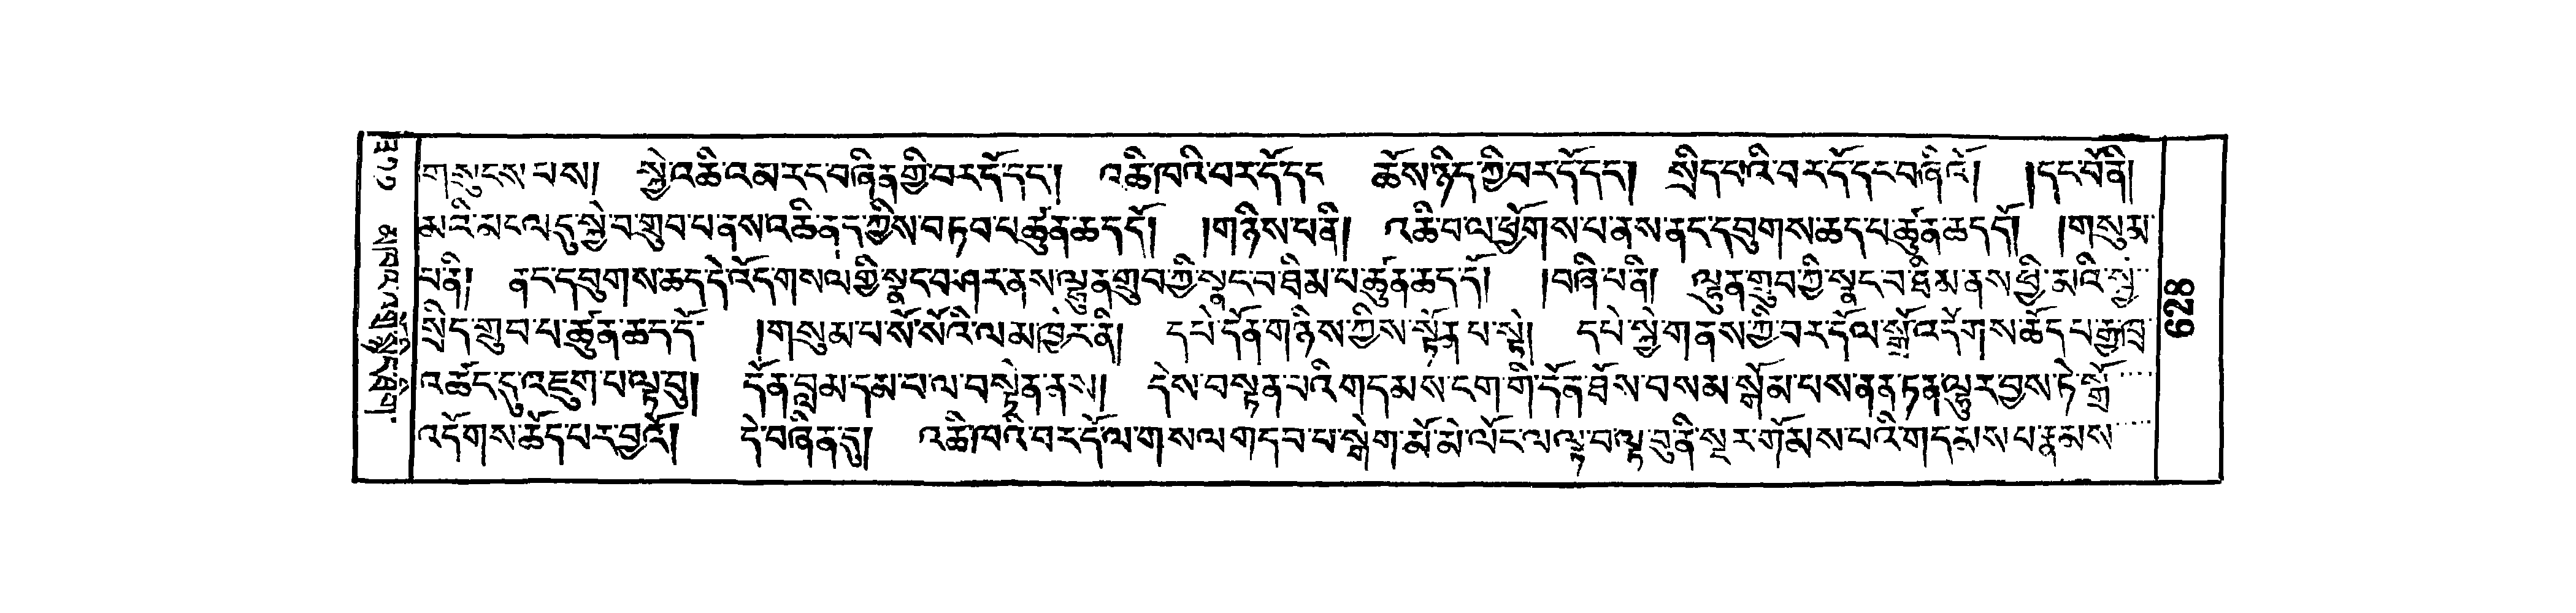 གསུངས་པས། སྐྱེ་འཆི་འམ་རང་བཞིན་གྱི་བར་དོ་དང་། འཆི་ཁའི་བར་དོ་དང་ ཆོས་ཉིད་ཀྱི་བར་དོ་དང་། སྲིད་པའི་བར་དོ་དང་བཞིའོ། །དང་པོ་ནི།
མའི་མངལ་དུ་སྐྱེ་བ་གྲུབ་པ་ནས་འཆི་ནད་ཀྱིས་བཏབ་པ་ཚུན་ཆད་དོ། །གཉིས་པ་ནི། འཆི་བ་ལ་ཕྱོགས་པ་ནས་ནང་དབུགས་ཆད་པ་ཚུན་ཆད་དོ། །གསུམ་
པ་ནི། ནང་དབུགས་ཆད་དེ་འོད་གསལ་གྱི་སྣང་བ་ཤར་ནས་ལྷུན་གྲུབ་ཀྱི་སྣང་བ་ཐིམ་པ་ཚུན་ཆད་དོ། །བཞི་པ་ནི། ལྷུན་གྲུབ་ཀྱི་སྣང་བ་ཐིམ་ནས་ཕྱི་མའི་སྐྱེ་
སྲིད་གྲུབ་པ་ཚུན་ཆད་དོ་ །གསུམ་པ་སོ་སོའི་ལམ་ཁྱེར་ནི། དཔེ་དོན་གཉིས་ཀྱིས་སྟོན་པ་སྟེ། དཔེ་སྐྱེ་གནས་ཀྱི་བར་དོ་ལ་སྒྲོ་འདོགས་ཆོད་པ་རྒྱ་ཁྲ་
འཚོང་དུ་འཇུག་པ་ལྟ་བུ། དོན་བླ་མ་དམ་པ་ལ་བསྟེན་ནས། དེས་བསྟན་པའི་གདམས་ངག་གི་དོན་ཐོས་བསམ་སྒོམ་པས་ནན་ཏན་ལྷུར་བྱས་ཏེ་སྒྲོ་
འདོགས་ཆོད་པར་བྱའོ། དེ་བཞིན་དུ། འཆི་ཁའི་བར་དོ་ལ་གསལ་གདབ་པ་སྒེག་མོ་མེ་ལོང་ལ་ལྟ་བ་ལྟ་བུ་ནི་སྔར་གོམས་པའི་གདམས་པ་རྣམས་